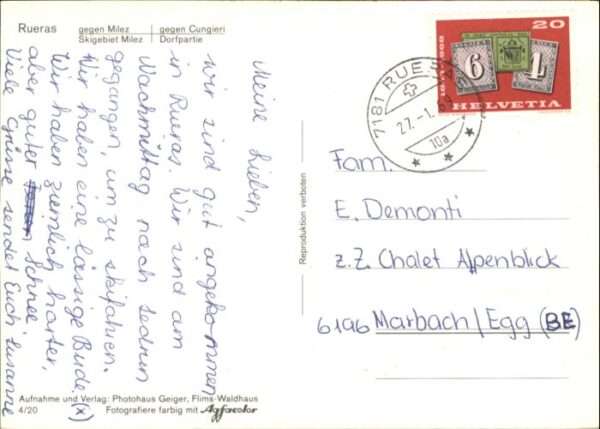 Rueras
gegen Milez
Skigebiet Milez
gegen Cungieri
Dorfpartie
Meine Lieben,
wir sind gut angekommen
in Rueras. Wir sind am
Nachmittag nach Sedrun
gegangen, um zu skifahren.
Wir haben eine lässige Bude. (x)
Wir haben ziemlich harter,
aber guter Schnee.
Viele Grüsse sendet Euch Susanne
Aufnahme und Verlag: Photohaus Geiger, Flims-Waldhaus
4/20
Fotografiere farbig mit Agfacolor
Reproduktion verboten
20
6
4
HELVETIA
7181 RUE
27.-1.
10a
Fam.
E. Demonti
z.Z. Chalet Alpenblick
6196 Marbach/Egg (BE)